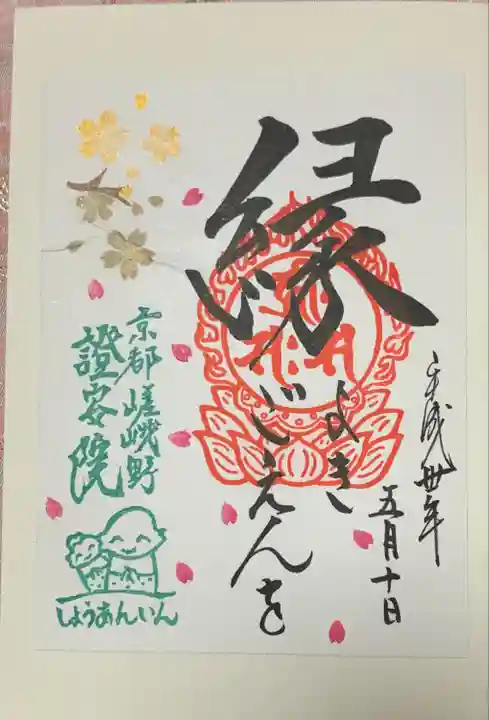 平成丗年
五月十日
縁
よき
ごえんを
京都 嵯峨野
證安院
しょうあんいん